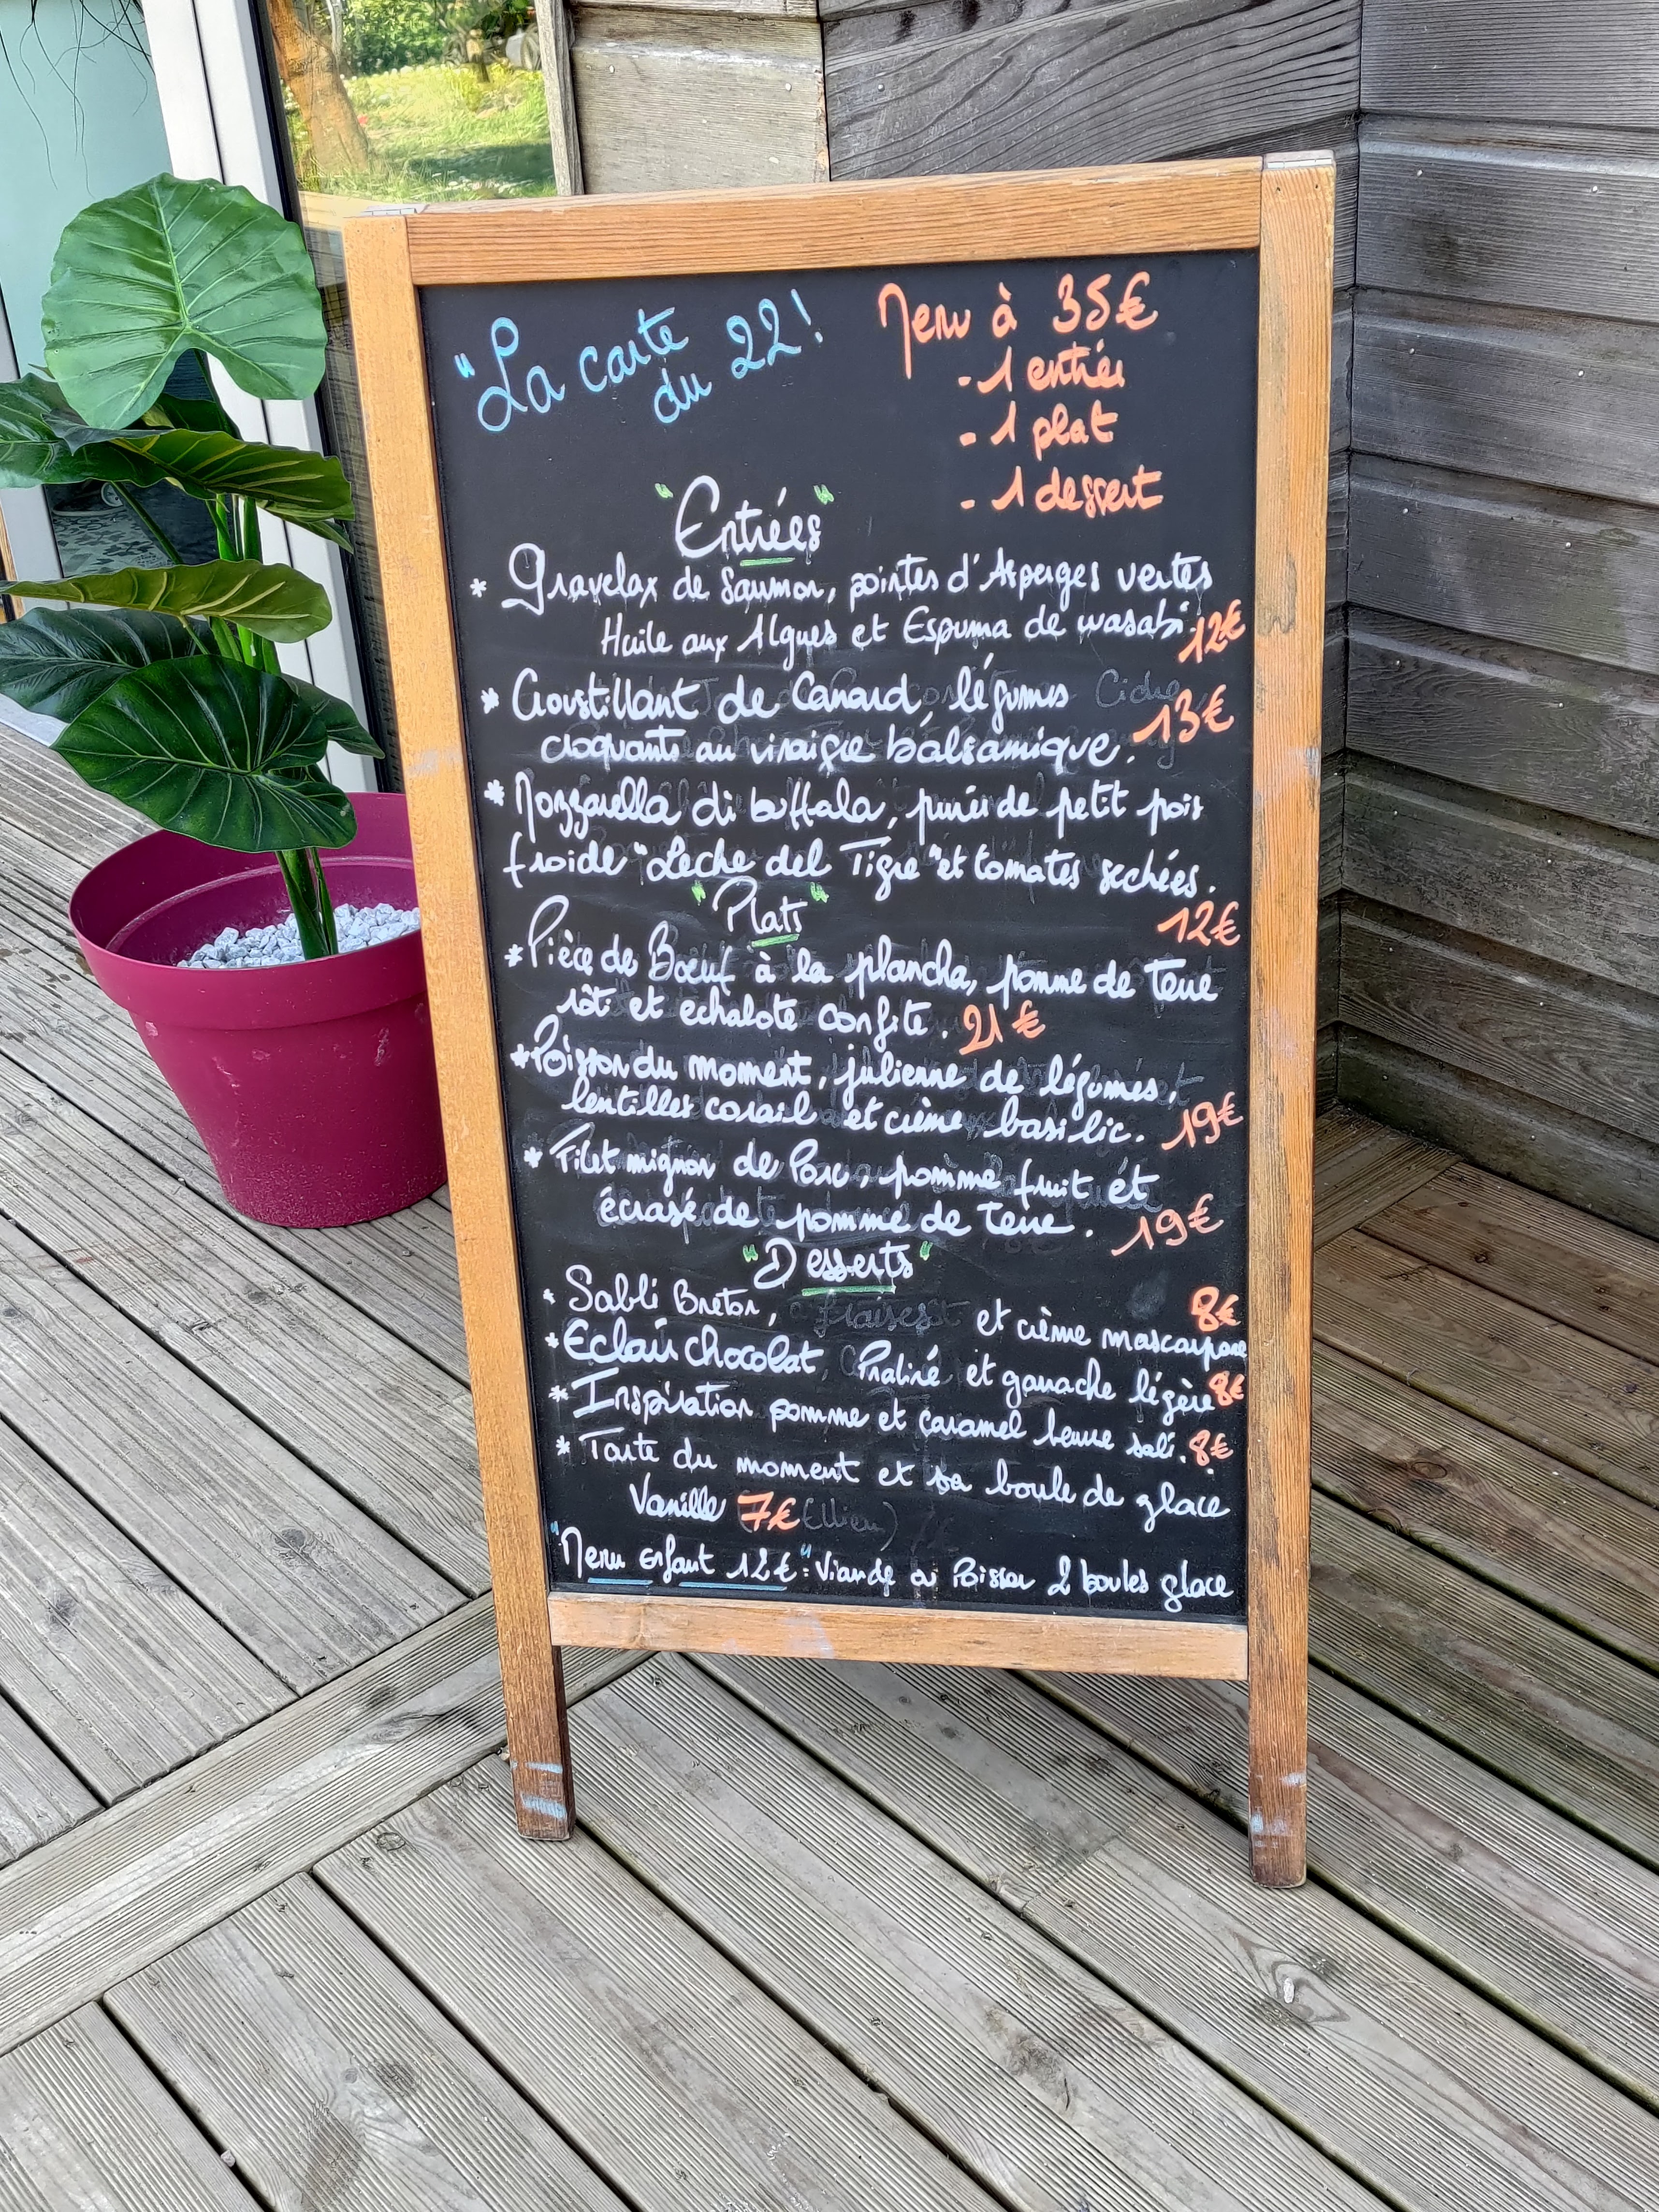 "La carte
du 22!
Menu à 35€
- 1 entrée
- 1 plat
- 1 dessert
"Entrées"
* Gravelax de Saumon, pointes d'Asperges vertes
Huile aux Algues et Espuma de wasabi. 12€
* Croustillant de Canard, légumes
croquants au vinaigre balsamique. 13€
* Mozzarella di buffala, purée de petit pois
froide "Leche del Tigre" et tomates sechées.
12€
"Plats"
* Pièce de Boeuf à la plancha, pomme de terre
rôti et echalote confite. 21€
* Poisson du moment, julienne de légumes,
lentilles corail et crème basilic. 19€
* Filet mignon de Porc, pomme fruit et
écrasé de pomme de terre. 19€
"Desserts"
* Sablé Breton, fraises et crème mascarpone 8€
* Eclair chocolat, Praliné et ganache légère 8€
* Inspiration pomme et caramel beurre salé. 8€
* Tarte du moment et sa boule de glace
Vanille 7€
"Menu enfant 12€": Viande ou Poisson 2 boules glace